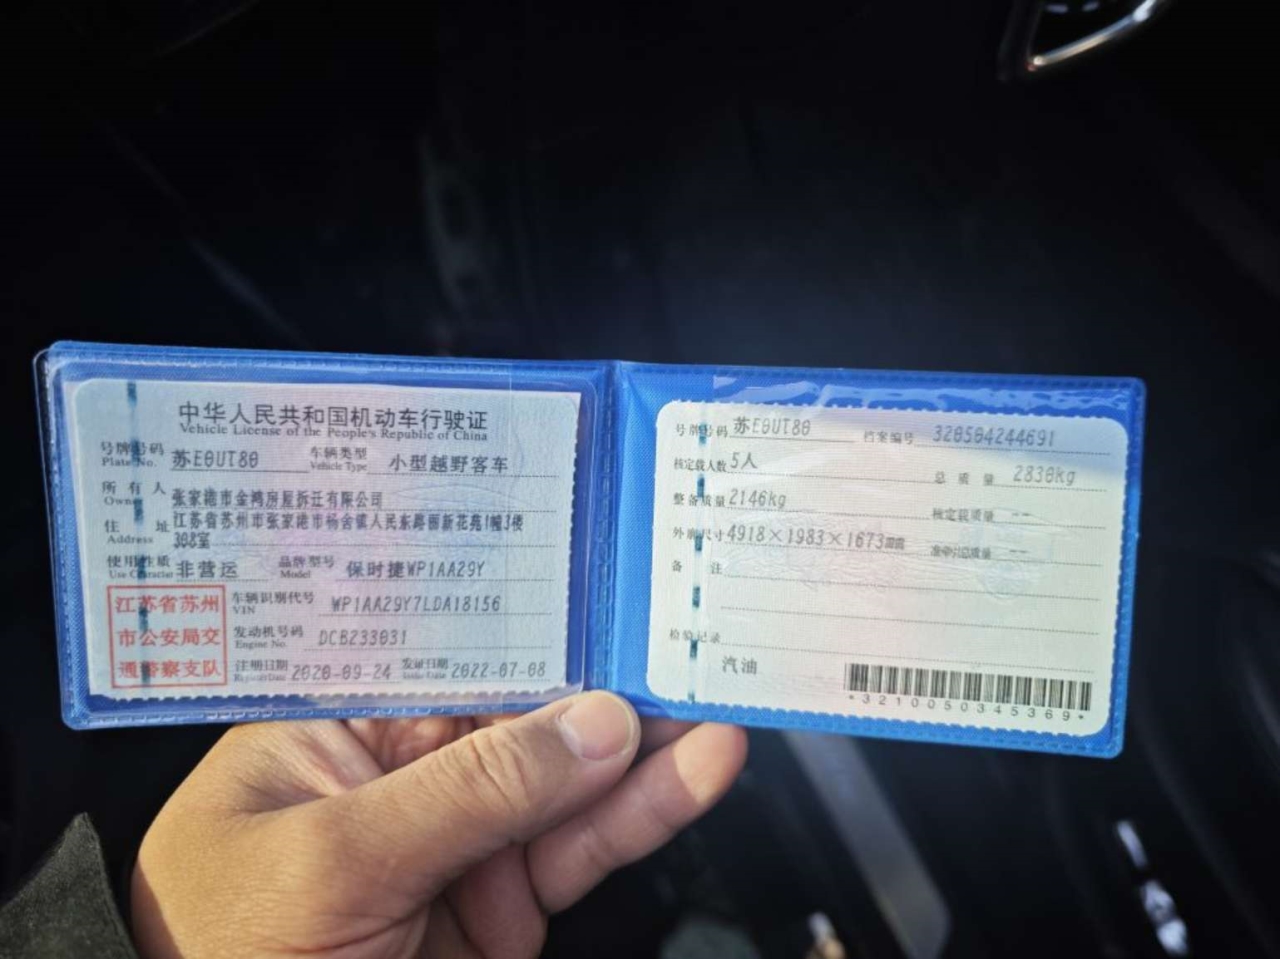 中华人民共和国机动车行驶证
Vehicle License of the People's Republic of China
号牌号码 苏E0UT80 车辆类型 小型越野客车
Plate No. Vehicle Type
所有人 张家港市金鸿房屋拆迁有限公司
Owner
住址 江苏省苏州市张家港市杨舍镇人民东路丽新花苑1幢3楼
Address 308室
使用性质 非营运 品牌型号 保时捷WP1AA29Y
Use Character Model
江苏省苏州
市公安局交
通警察支队
车辆识别代号 WP1AA29Y7LDA18156
VIN
发动机号码 DCB233031
Engine No.
注册日期 2020-09-24 发证日期 2022-07-08
Register Date Issue Date
号牌号码 苏E0UT80 档案编号 320504244691
核定载人数 5人 总质量 2830kg
整备质量 2146kg 核定载质量 --
外廓尺寸 4918×1983×1673mm 准牵引总质量 --
备注
检验记录
汽油
*3210050345369*